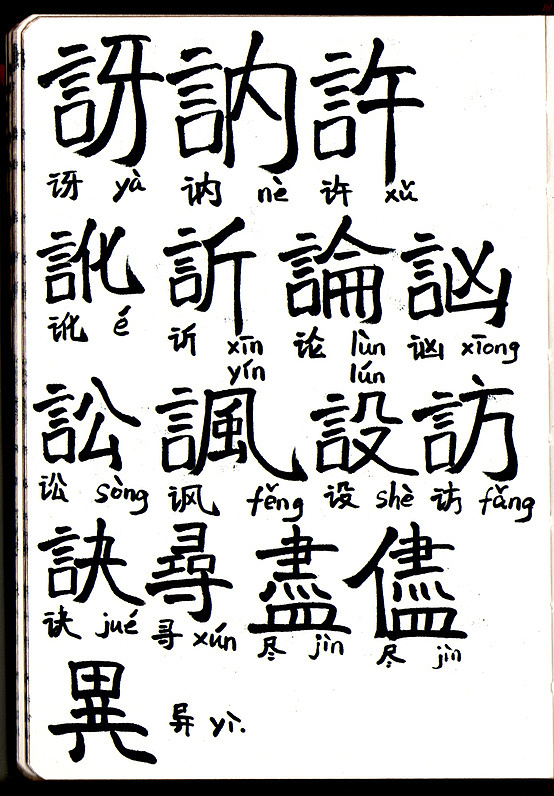 訝 訥 許
讶 yà 讷 nè 许 xǔ
訛 訢 論 訩
讹 é 䜣 xīn 论 lùn 讻 xiōng
yín lún
訟 諷 設 訪
讼 sòng 讽 fěng 设 shè 访 fǎng
訣 尋 盡 儘
诀 jué 寻 xún 尽 jìn 尽 jìn
異 异 yì.